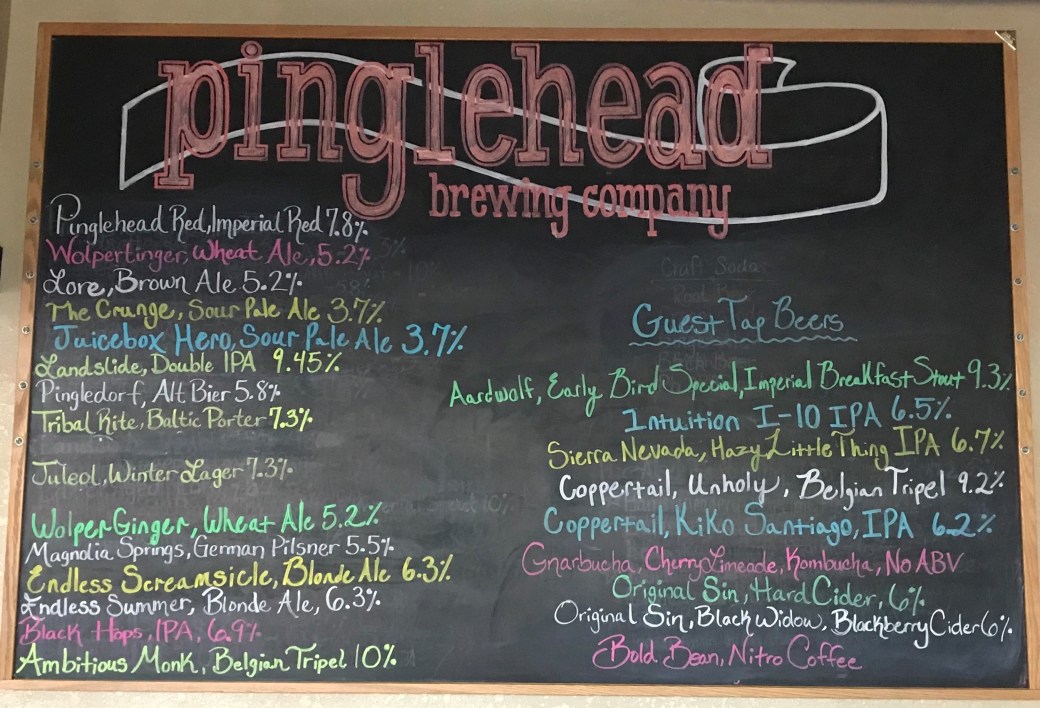 pinglehead
brewing company
Pinglehead Red, Imperial Red 7.8%
Wolpertinger, Wheat Ale, 5.2%
Lore, Brown Ale 5.2%
The Crunge, Sour Pale Ale 3.7%
Juicebox Hero, Sour Pale Ale 3.7%
Landslide, Double IPA 9.45%
Pingledorf, Alt Bier 5.8%
Tribal Rite, Baltic Porter 7.3%
Juleol, Winter Lager 7.3%
Wolper Ginger, Wheat Ale 5.2%
Magnolia Springs, German Pilsner 5.5%
Endless Screamsicle, Blonde Ale 6.3%
Endless Summer, Blonde Ale, 6.3%
Black Hops, IPA, 6.9%
Ambitious Monk, Belgian Tripel 10%
Craft Sodas
Root Beer
Guest Tap Beers
Aardwolf, Early Bird Special, Imperial Breakfast Stout 9.3%
Intuition I-10 IPA 6.5%
Sierra Nevada, Hazy Little Thing IPA 6.7%
Coppertail, Unholy, Belgian Tripel 9.2%
Coppertail, Kiko Santiago, IPA 6.2%
Gnarbucha, Cherry Limeade, Kombucha, No ABV
Original Sin, Hard Cider, 6%
Original Sin, Black Widow, Blackberry Cider 6%
Bold Bean, Nitro Coffee